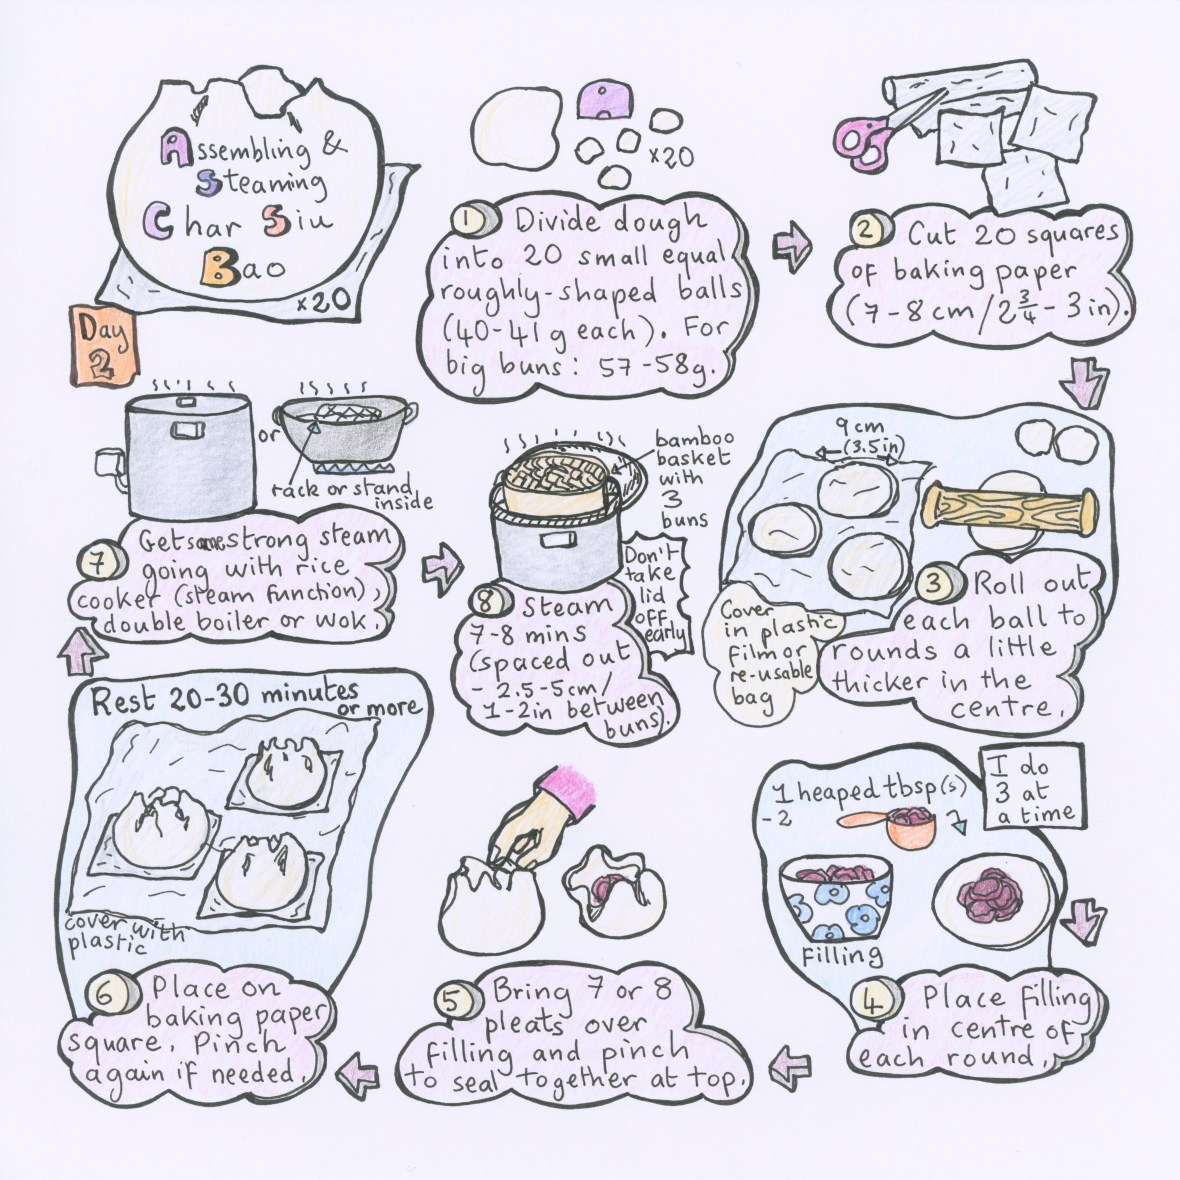 Assembling &
Steaming
Char Siu
Bao
x20
Day
2
x20
1 Divide dough
into 20 small equal
roughly-shaped balls
(40-41g each). For
big buns: 57-58g.
2 Cut 20 squares
of baking paper
(7-8cm/2¾-3in).
9cm
(3.5in)
3 Roll out
each ball to
rounds a little
thicker in the
centre.
Cover
in plastic
film or
re-usable
bag
I do
3 at
a time
1 heaped tbsp(s)
-2
Filling
4 Place filling
in centre of
each round.
5 Bring 7 or 8
pleats over
filling and pinch
to seal together at top.
Rest 20-30 minutes
or more
cover with
plastic
6 Place on
baking paper
square. Pinch
again if needed.
or
rack or stand
inside
7 Get some strong steam
going with rice
cooker (steam function),
double boiler or wok.
bamboo
basket
with
3
buns
Don't
take
lid
off
early
8 Steam
7-8 mins
(spaced out
- 2.5-5cm/
1-2in between
buns).